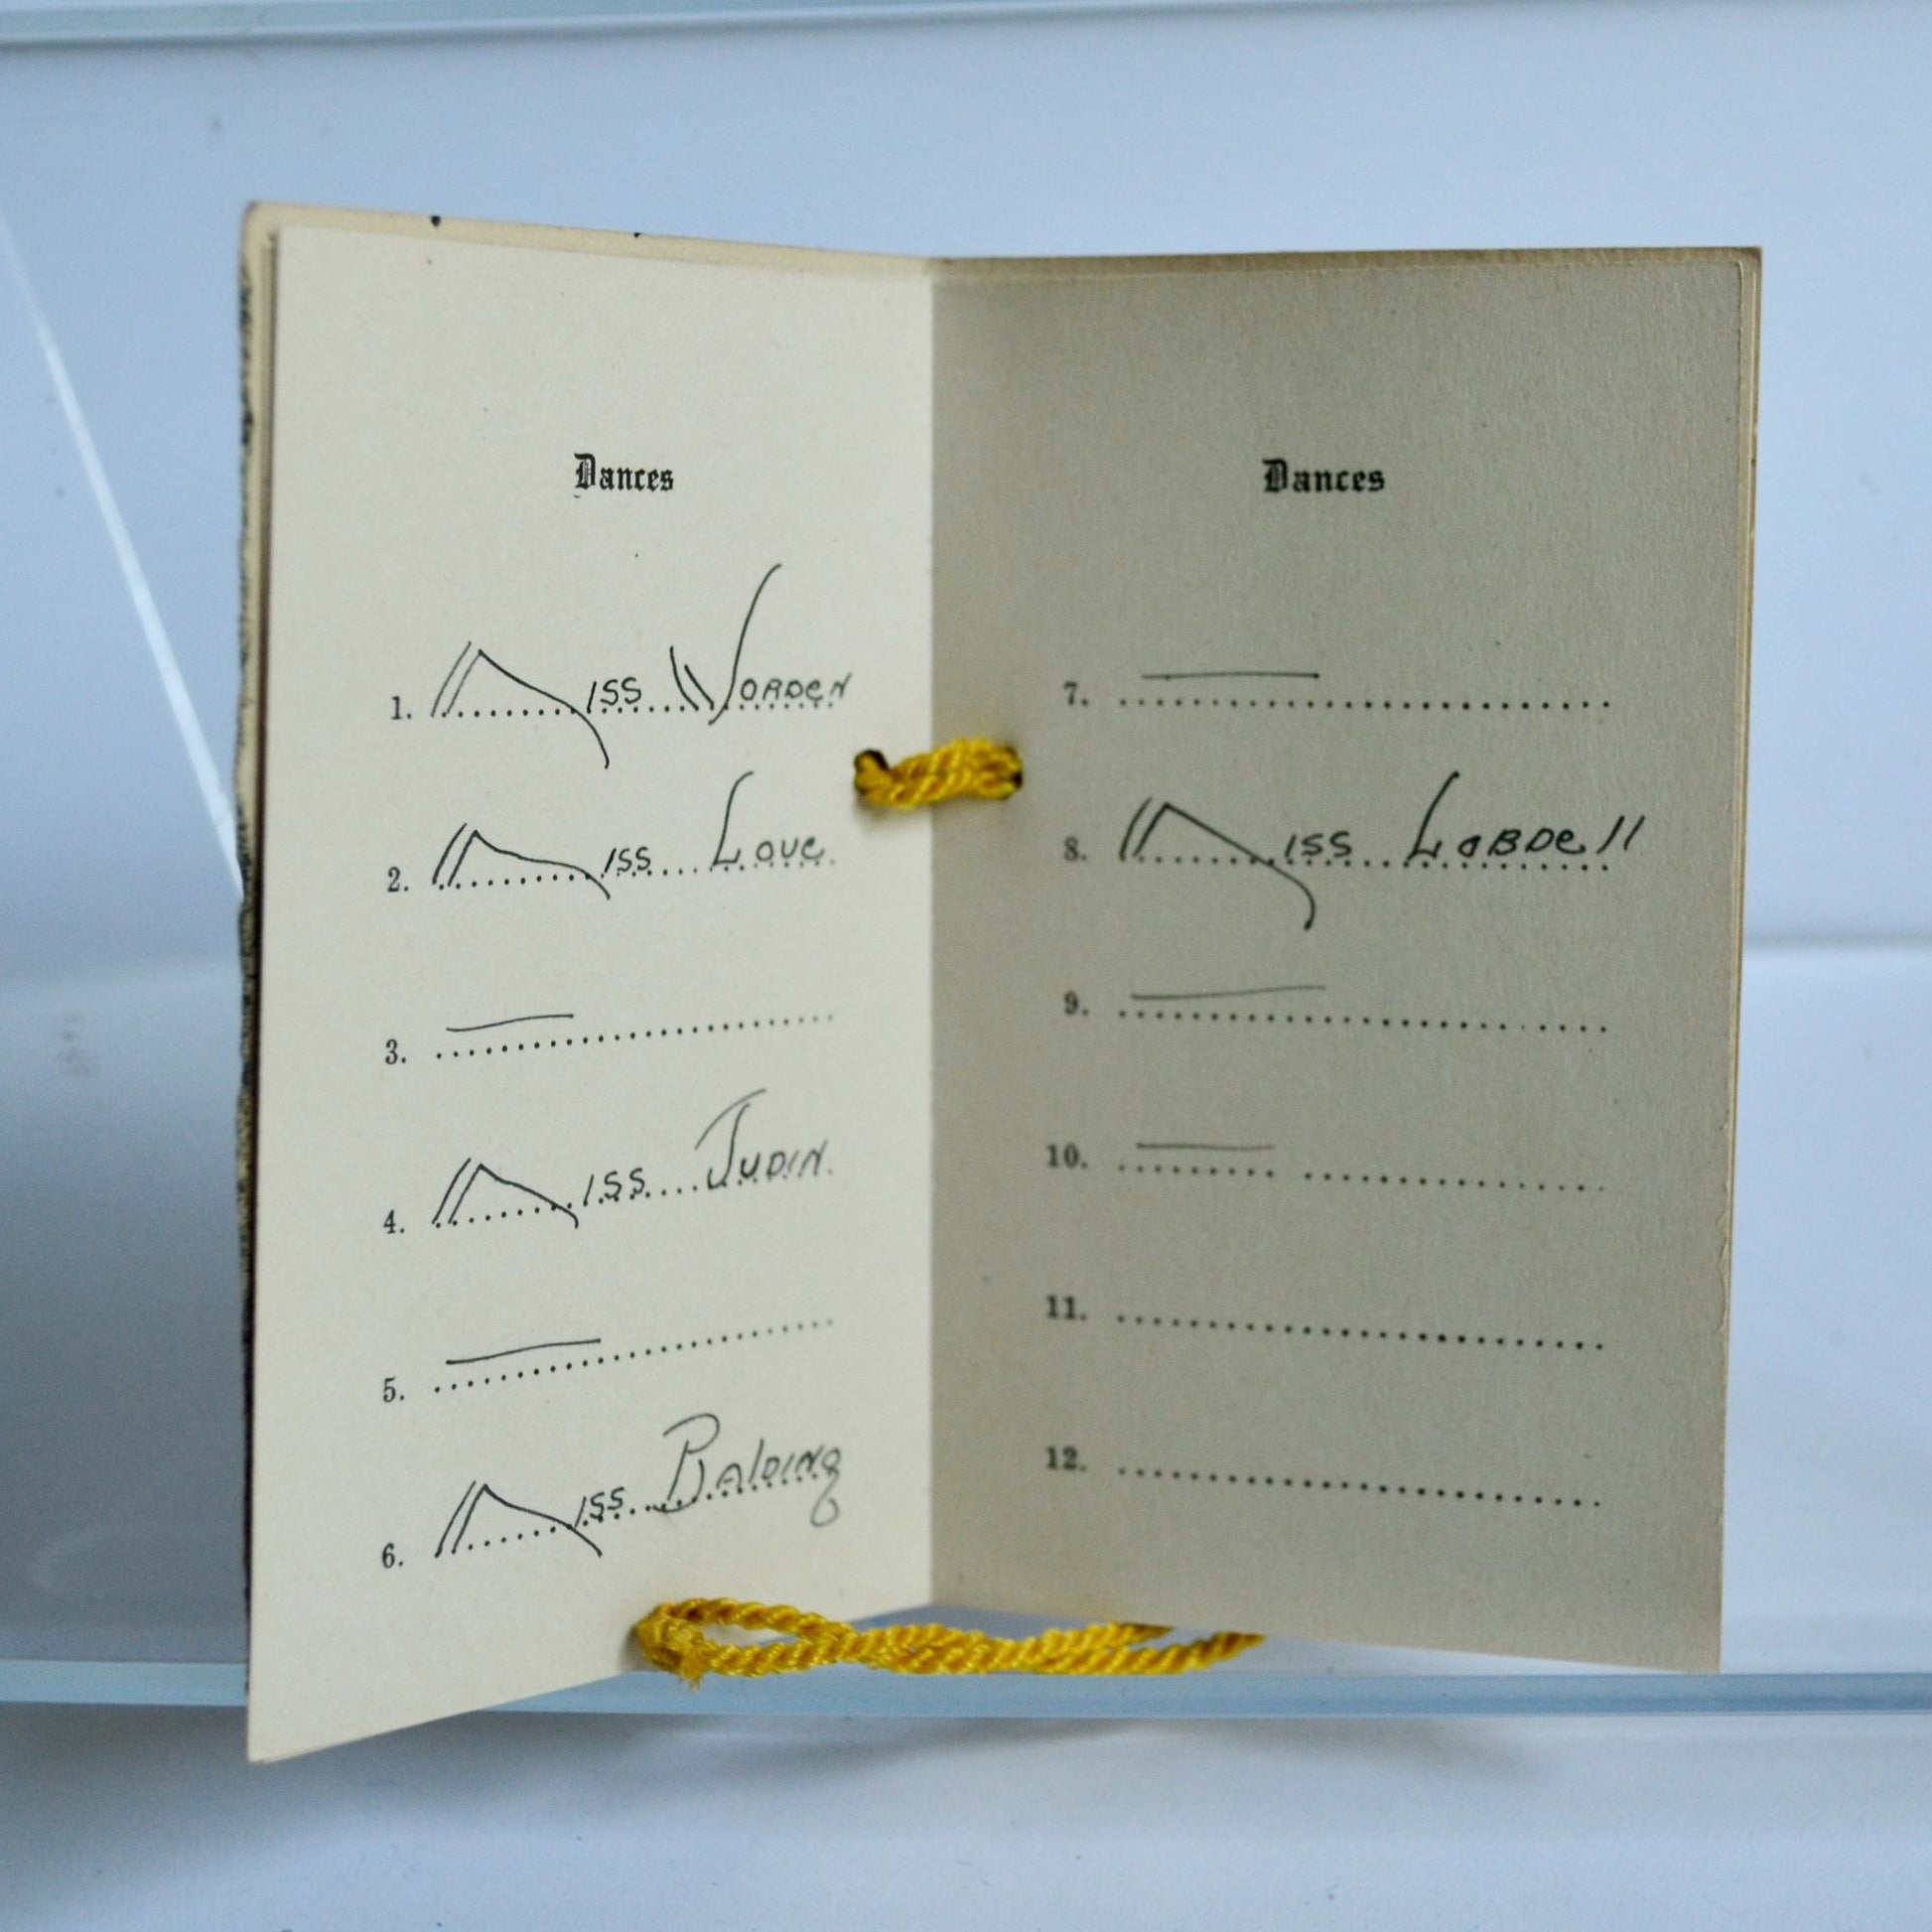 Dances
1. Miss Worden
2. Miss Love
3. —
4. Miss Judin.
5. —
6. Miss Balding
Dances
7. —
8. Miss Lobdell
9. —
10. —
11.
12.